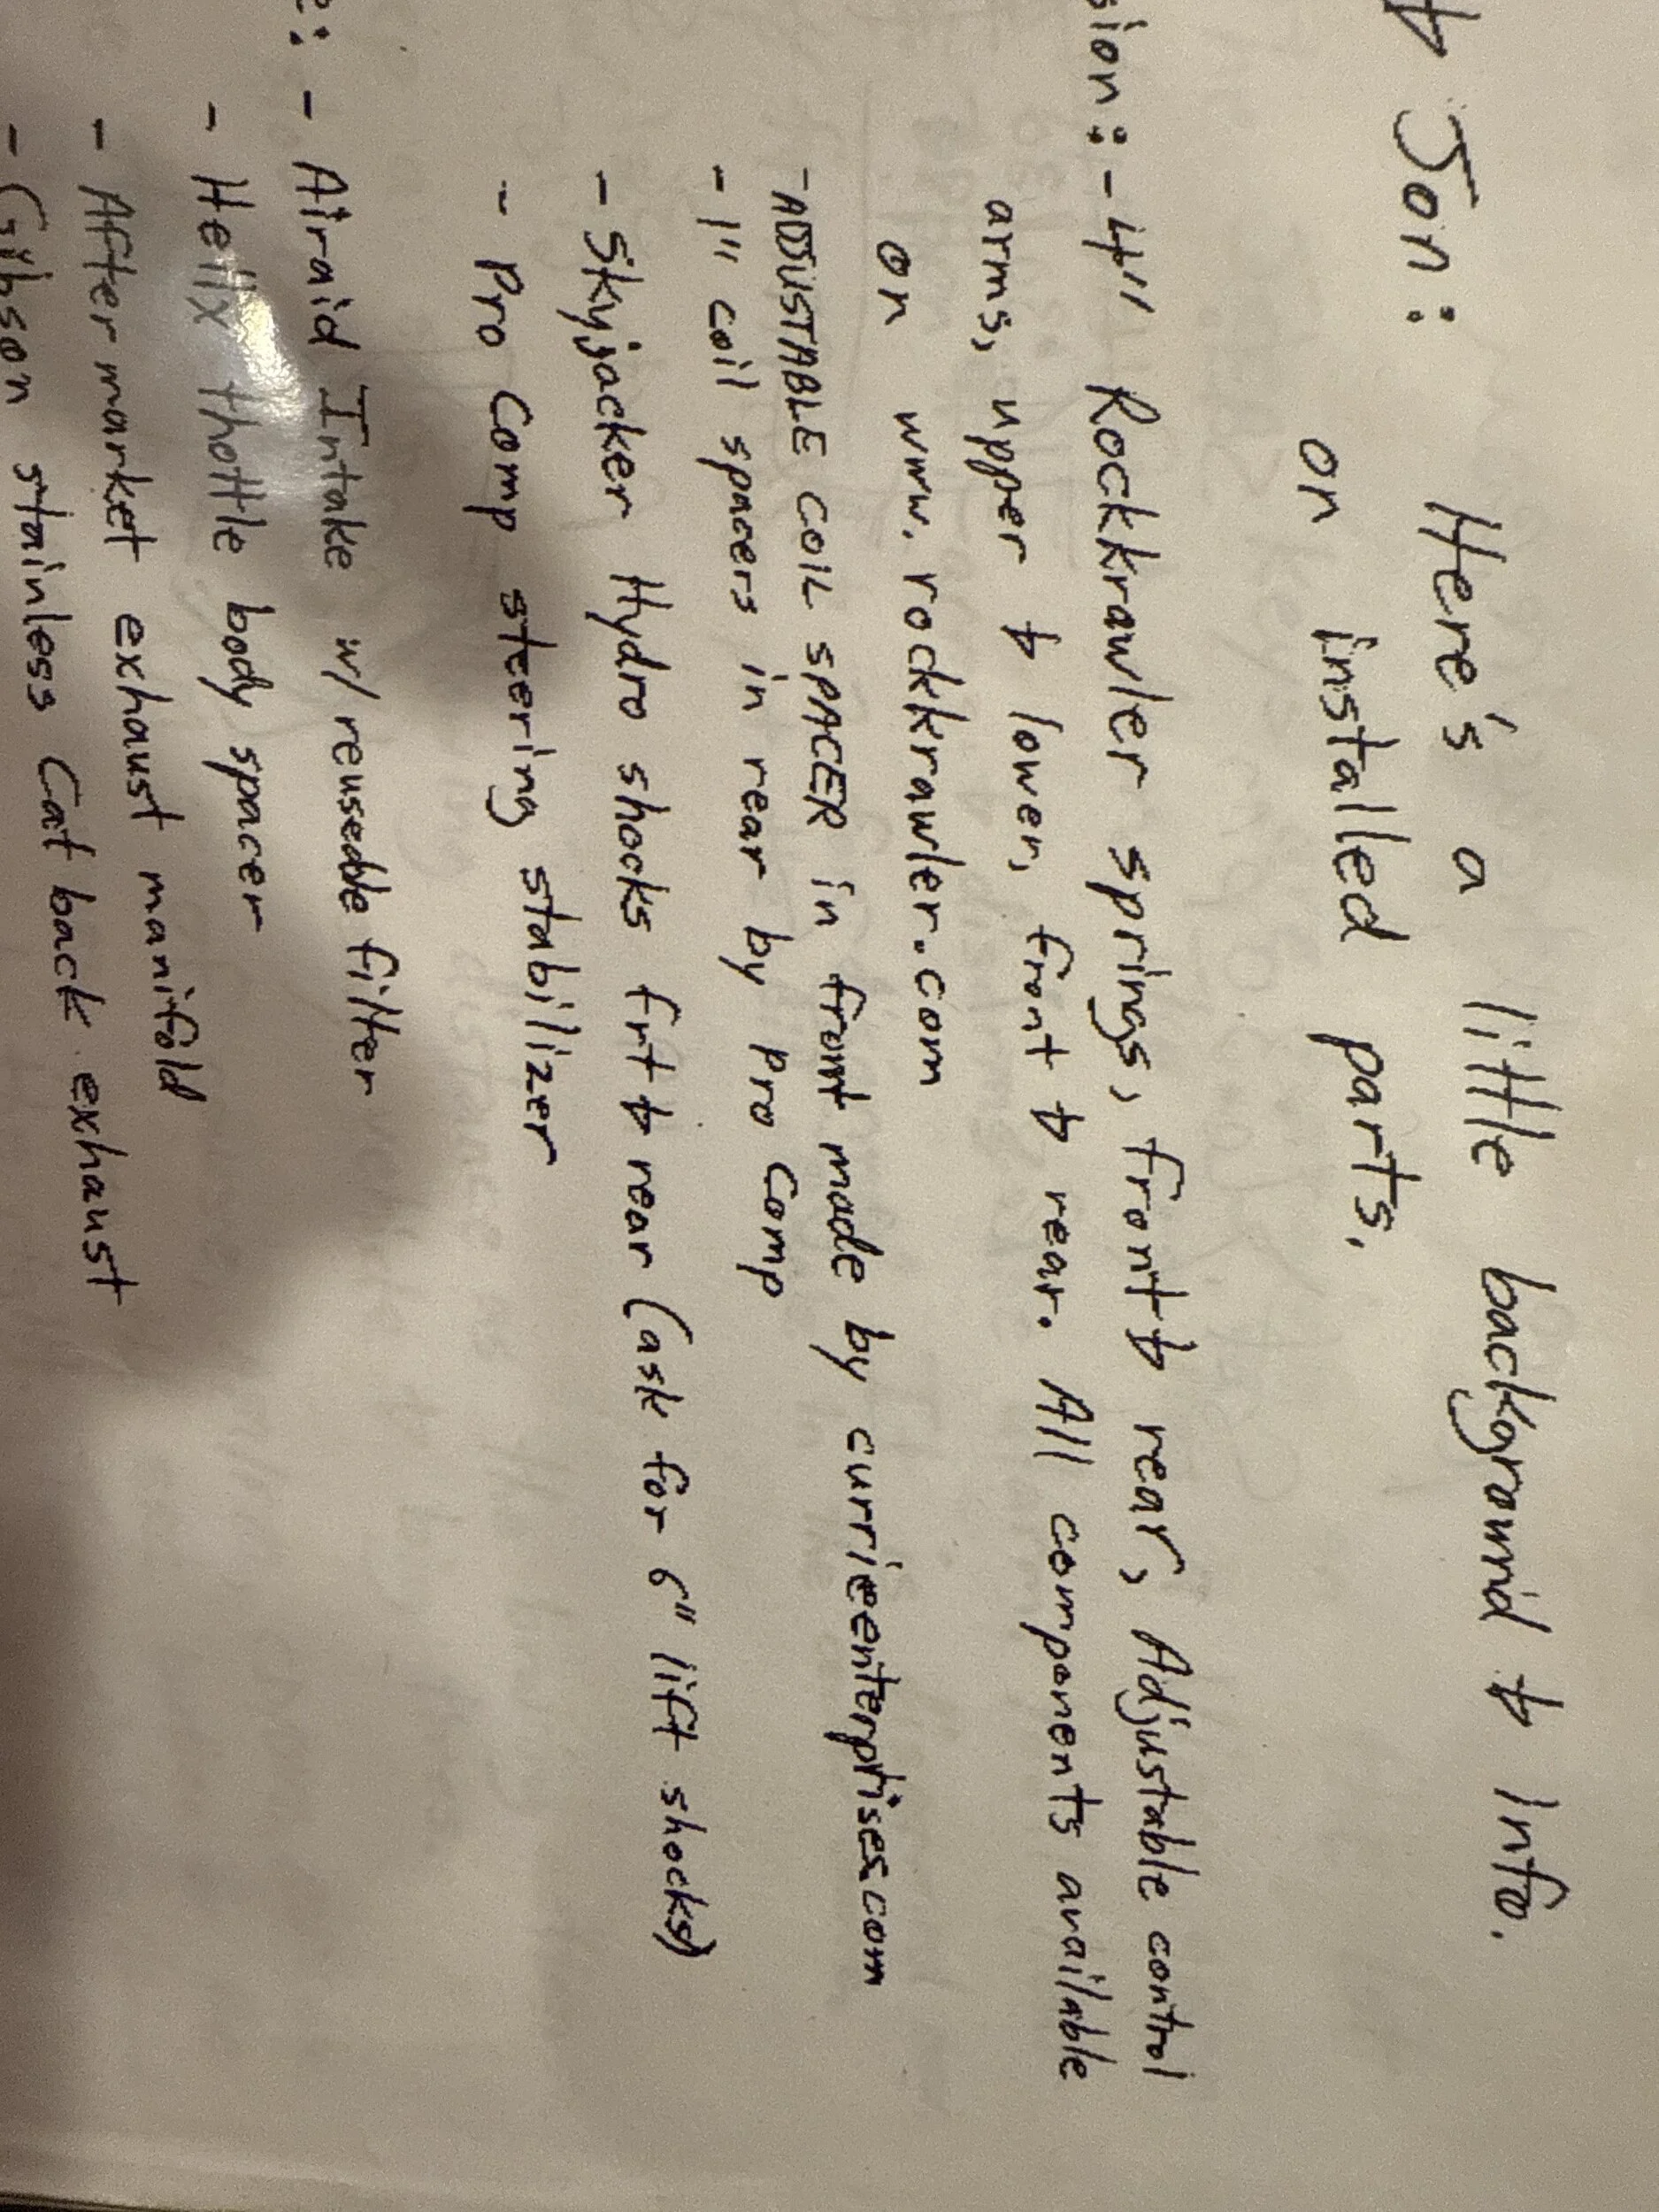 & Jon: Here's a little background & Info.
on installed parts.
sion: - 4" Rockkrawler springs, front & rear, Adjustable control
arms, upper & lower, front & rear. All components available
on www.rockkrawler.com
- ADJUSTABLE COIL SPACER in front made by currieenterprises.com
- 1" coil spacers in rear by Pro Comp
- Skyjacker Hydro shocks frt & rear (ask for 6" lift shocks)
- Pro Comp steering stabilizer
e: - Airaid Intake w/ reuseable filter
- Helix thottle body spacer
- After market exhaust manifold
- Gibson stainless Cat back exhaust